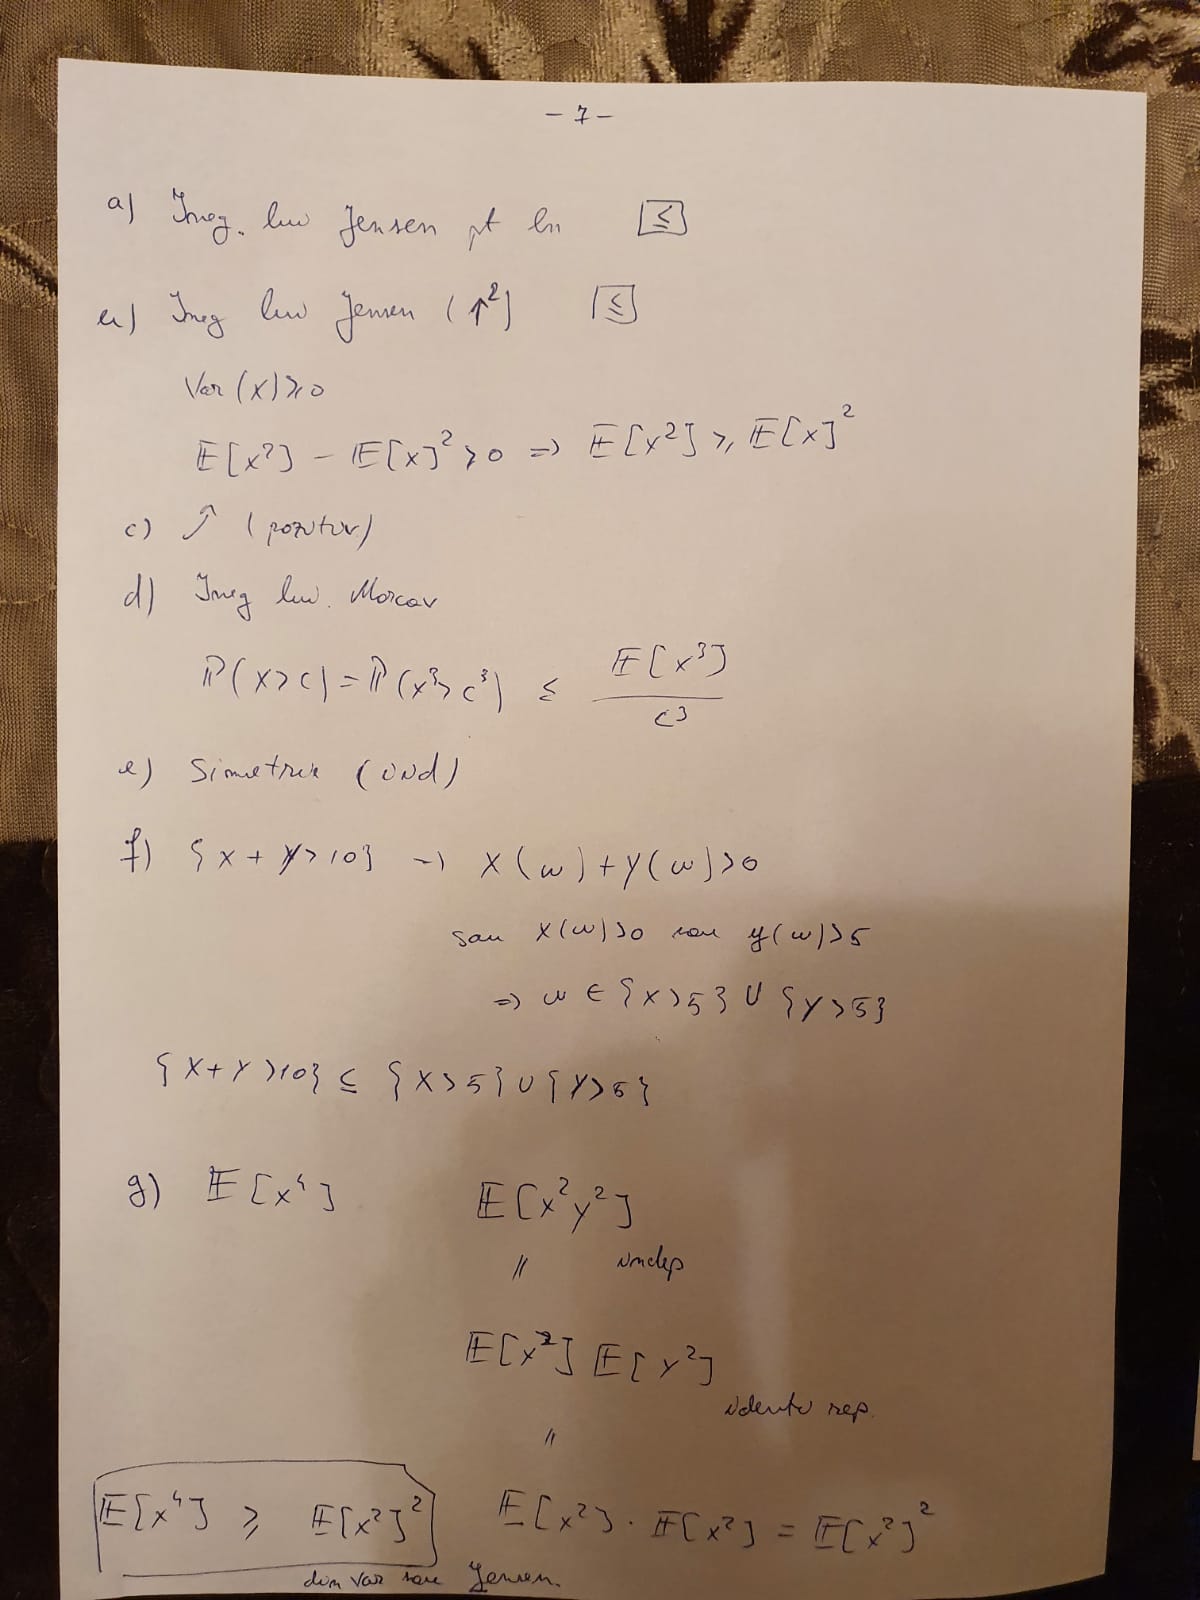 - 7 -
a) Ineg. lui Jensen pt ln ≤
b) Ineg lui Jensen (↑²) ≤
Var (X) ≥ 0
E[X²] - E[X]² ≥ 0 => E[X²] ≥ E[X]²
c) ↑ (pozitiv)
d) Ineg lui. Marcov
P(X>c) = P(X³>c³) ≤ E[X³] / c³
e) Simetrie (iid)
f) {X + Y > 10} → X(ω) + Y(ω) > 0
sau X(ω) > 0 sau Y(ω) > 5
=> ω ∈ {X > 5} ∪ {Y > 5}
{X + Y > 10} ⊆ {X > 5} ∪ {Y > 5}
g) E[X⁴] E[X²Y²]
|| indep
E[X²] E[Y²]
identic rep.
||
E[X⁴] ≥ E[X²]² E[X²] · E[X²] = E[X²]²
din Var sau Jensen.